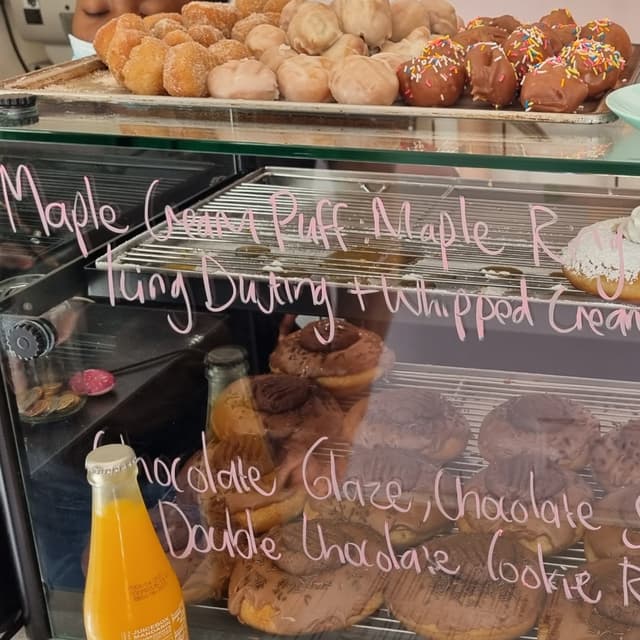 Maple Cream Puff Maple Ring
Icing Dusting + Whipped Cream
Chocolate Glaze, Chocolate S
Double Chocolate Cookie R
JUICEBOX